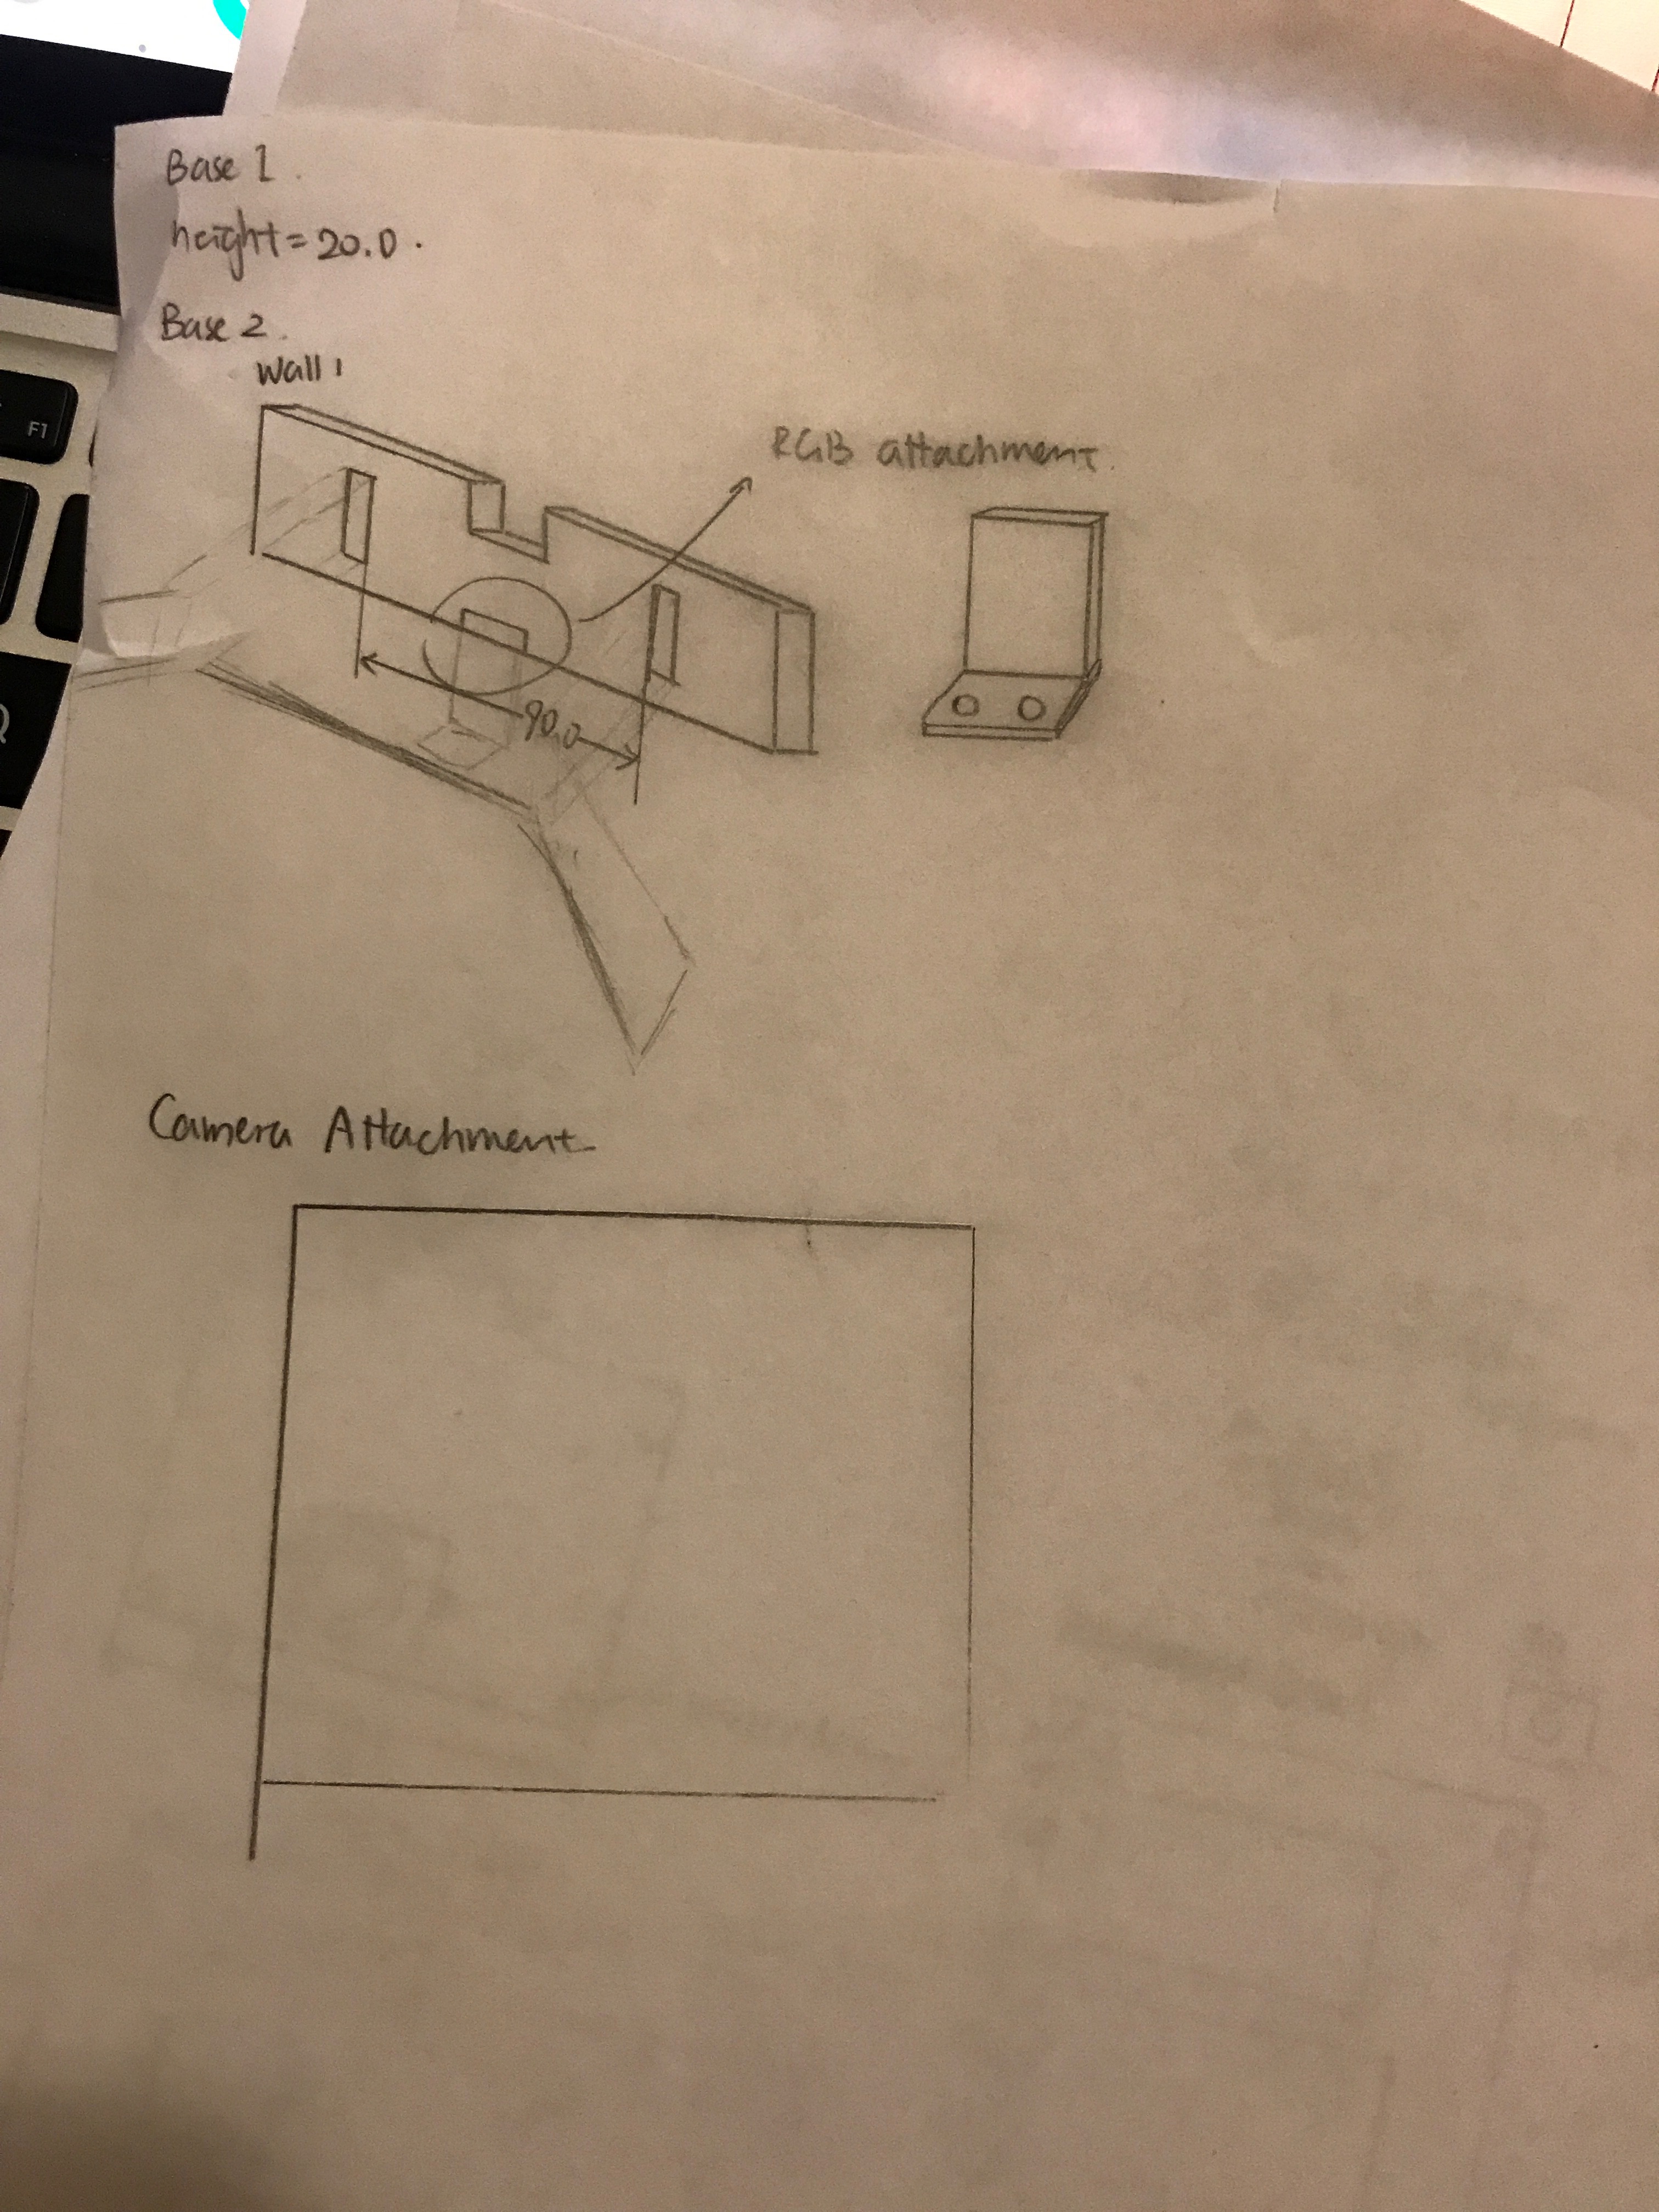 Base 1.
height=20.0.
Base 2.
Wall 1
RGB attachment.
90.0
Camera Attachment
F1